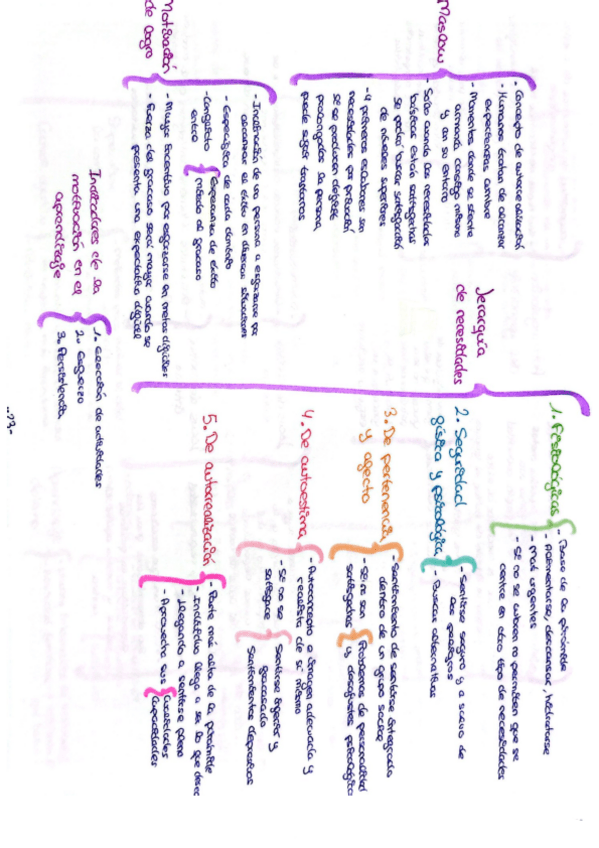 Maslow
- Concepto de autorrealización
- Humanos tratan de alcanzar
experiencias cumbre
- Momentos donde se siente
armonía consigo mismo
y con su entorno
- Sólo cuando las necesidades
básicas están satisfechas
se podrá buscar satisfacción
de niveles superiores
- 4 primeros escalones son
necesidades por privación
si se producen déficit
prolongados la persona
puede sufrir trastornos
Jerarquía
de necesidades
1. Fisiológicas
- Base de la pirámide
- Alimentarse, descansar, hidratarse
- Más urgentes
- Si no se cubren no permiten que se
centre en otro tipo de necesidades
2. Seguridad
física y psicológica
- Sentirse seguro y a salvo de
los peligros
- Buscar alternativas
3. De pertenencia
y afecto
- Sentimiento de sentirse integrado
dentro de un grupo social
- Si no son
satisfechas
Problemas de personalidad
y desajustes psicológicos
4. De autoestima
- Autoconcepto e imagen adecuada y
realista de sí mismo
- Si no se
satisface
Sentirse inferior y
fracasado
Sentimientos depresivos
5. De autorrealización
- Parte más alta de la pirámide
- Individuo llega a ser lo que desea
llegando a sentirse pleno
- Aprovecha sus
Cualidades
Capacidades
Motivación
de logro
- Inclinación de una persona a esforzarse por
alcanzar el éxito en diversas situaciones
- Específica de cada ámbito
- Conflicto
entre
Esperanza de éxito
miedo al fracaso
- Mayor incentivo por esforzarse en metas difíciles
- Fuerza del fracaso será mayor cuando se
presenta una expectativa difícil
Indicadores de la
motivación en el
aprendizaje
1. Elección de actividades
2. Esfuerzo
3. Persistencia
-23-